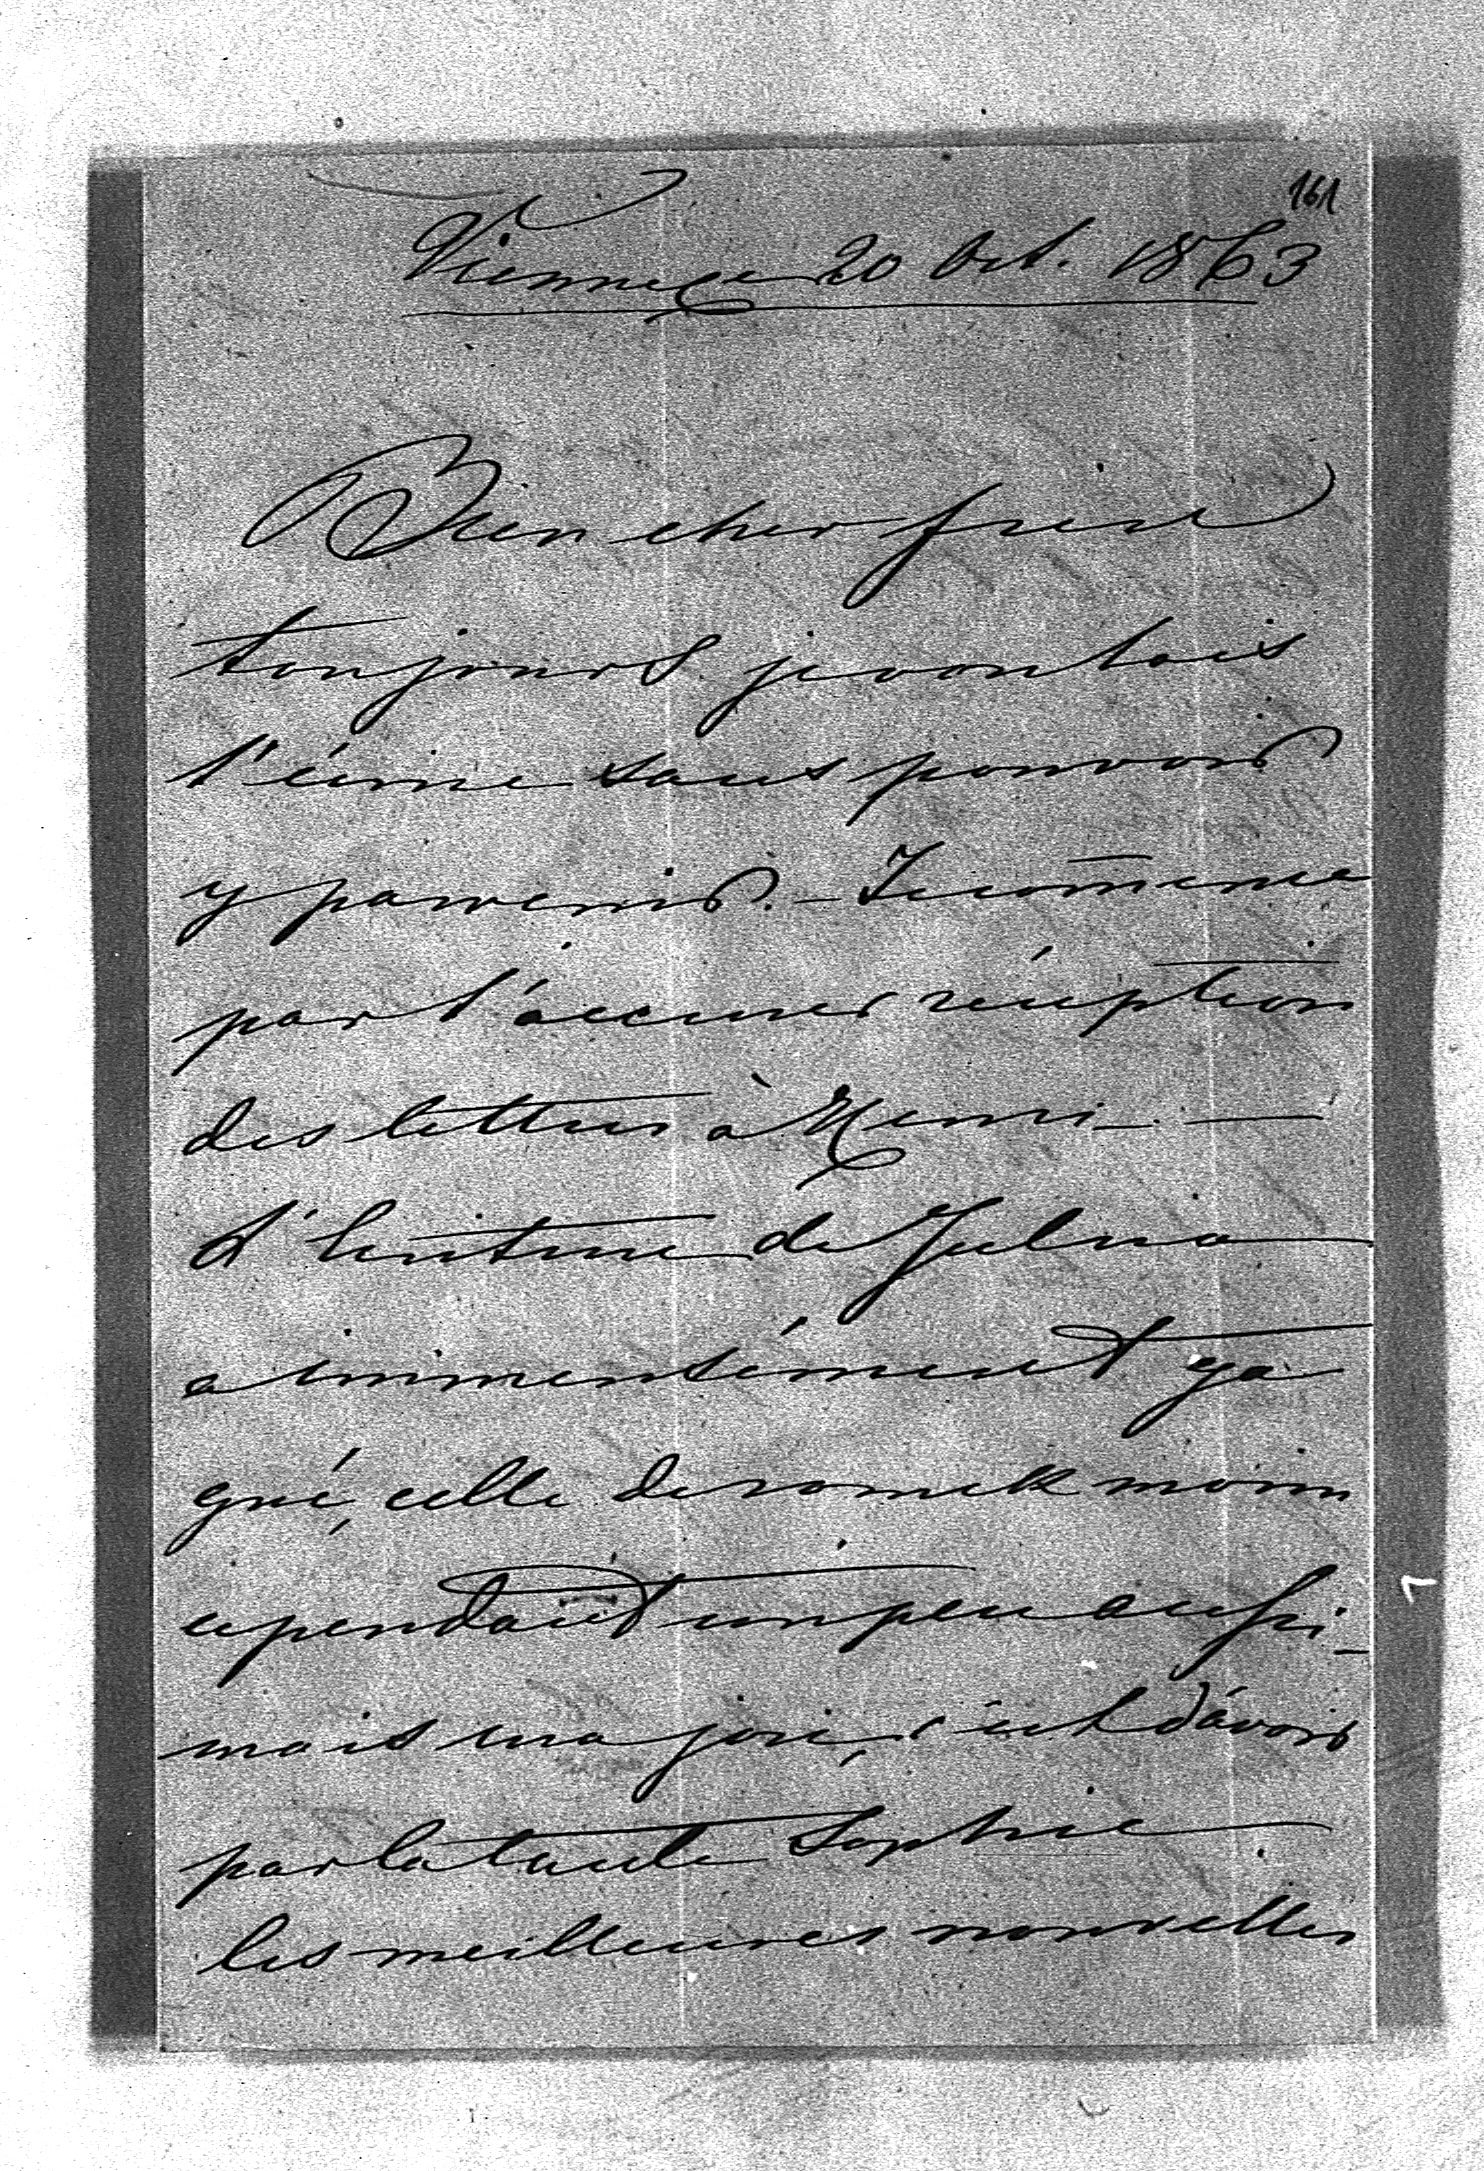 161
Vienne ce 20 Oct. 1863
Bien cher frere
toujours je voulais
t'écrire sans pouvoir
y parvenir. – Je com̄ence
par t'accuser réception
des lettres à Henri –
L'écriture de Julia
a immensément ga
gné, celle de Romek moins
cependant un peu aussi –
mais ma joie, c'est d'avoir
par la tante Sophie
les meilleures nouvelles